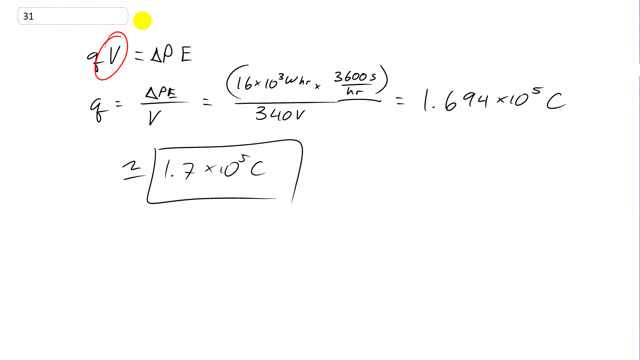 31
qV = ΔPE
q = ΔPE/V = (16×10³Whr × 3600s/hr)/340V = 1.694×10⁵ C
≃ 1.7×10⁵ C